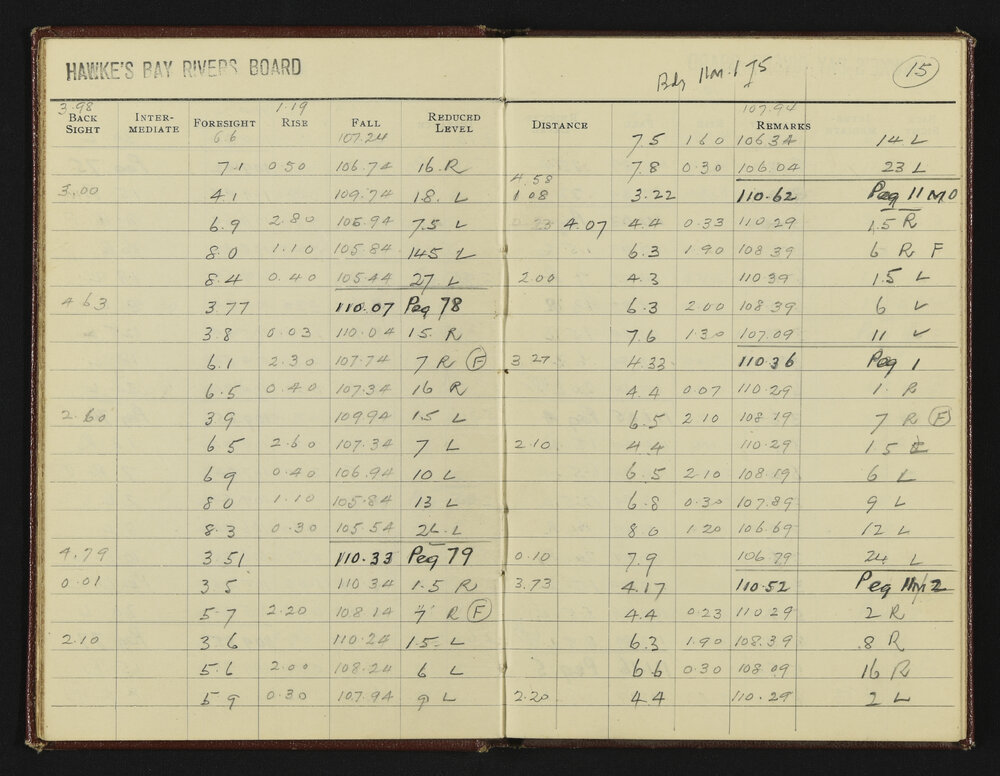 HAWKE'S BAY RIVERS BOARD
3.98 1.19
BACK SIGHT INTER-MEDIATE FORESIGHT RISE FALL REDUCED LEVEL
6.6 107.24
7.1 0.50 106.74 16 R
3.00 4.1 109.74 1.8 L
6.9 2.80 106.94 7.5 L
8.0 1.10 105.84 14.5 L
8.4 0.40 105.44 27 L
4.63 3.77 110.07 Peg 78
3.8 0.03 110.04 1.5 R
6.1 2.30 107.74 7 R F
6.5 0.40 107.34 16 R
2.60 3.9 109.94 1.5 L
6.5 2.60 107.34 7 L
6.9 0.40 106.94 10 L
8.0 1.10 105.84 13 L
8.3 0.30 105.54 24 L
4.79 3.51 110.33 Peg 79
0.01 3.5 110.34 1.5 R
5.7 2.20 108.14 7 R F
2.10 3.6 110.24 1.5 L
5.6 2.00 108.24 6 L
5.9 0.30 107.94 9 L
15
107.94
DISTANCE REMARKS
7.5 1.60 106.34 14 L
7.8 0.30 106.04 23 L
4.58
1.08 3.22 110.62 Peg 11 M 0
0.33 4.07 4.4 0.33 110.29 1.5 R
6.3 1.90 108.39 6 R F
2.00 4.3 110.39 1.5 L
6.3 2.00 108.39 6 L
7.6 1.30 107.09 11 L
3.27 4.33 110.36 Peg 1
4.4 0.07 110.29 1. R
6.5 2.10 108.19 7 R F
2.10 4.4 110.29 1.5 L
6.5 2.10 108.19 6 L
6.8 0.30 107.89 9 L
8.0 1.20 106.69 12 L
0.10 7.9 106.79 24 L
3.73 4.17 110.52 Peg 11M 2
4.4 0.23 110.29 2 R
6.3 1.90 108.39 8 R
6.6 0.30 108.09 16 R
2.20 4.4 110.29 2 L